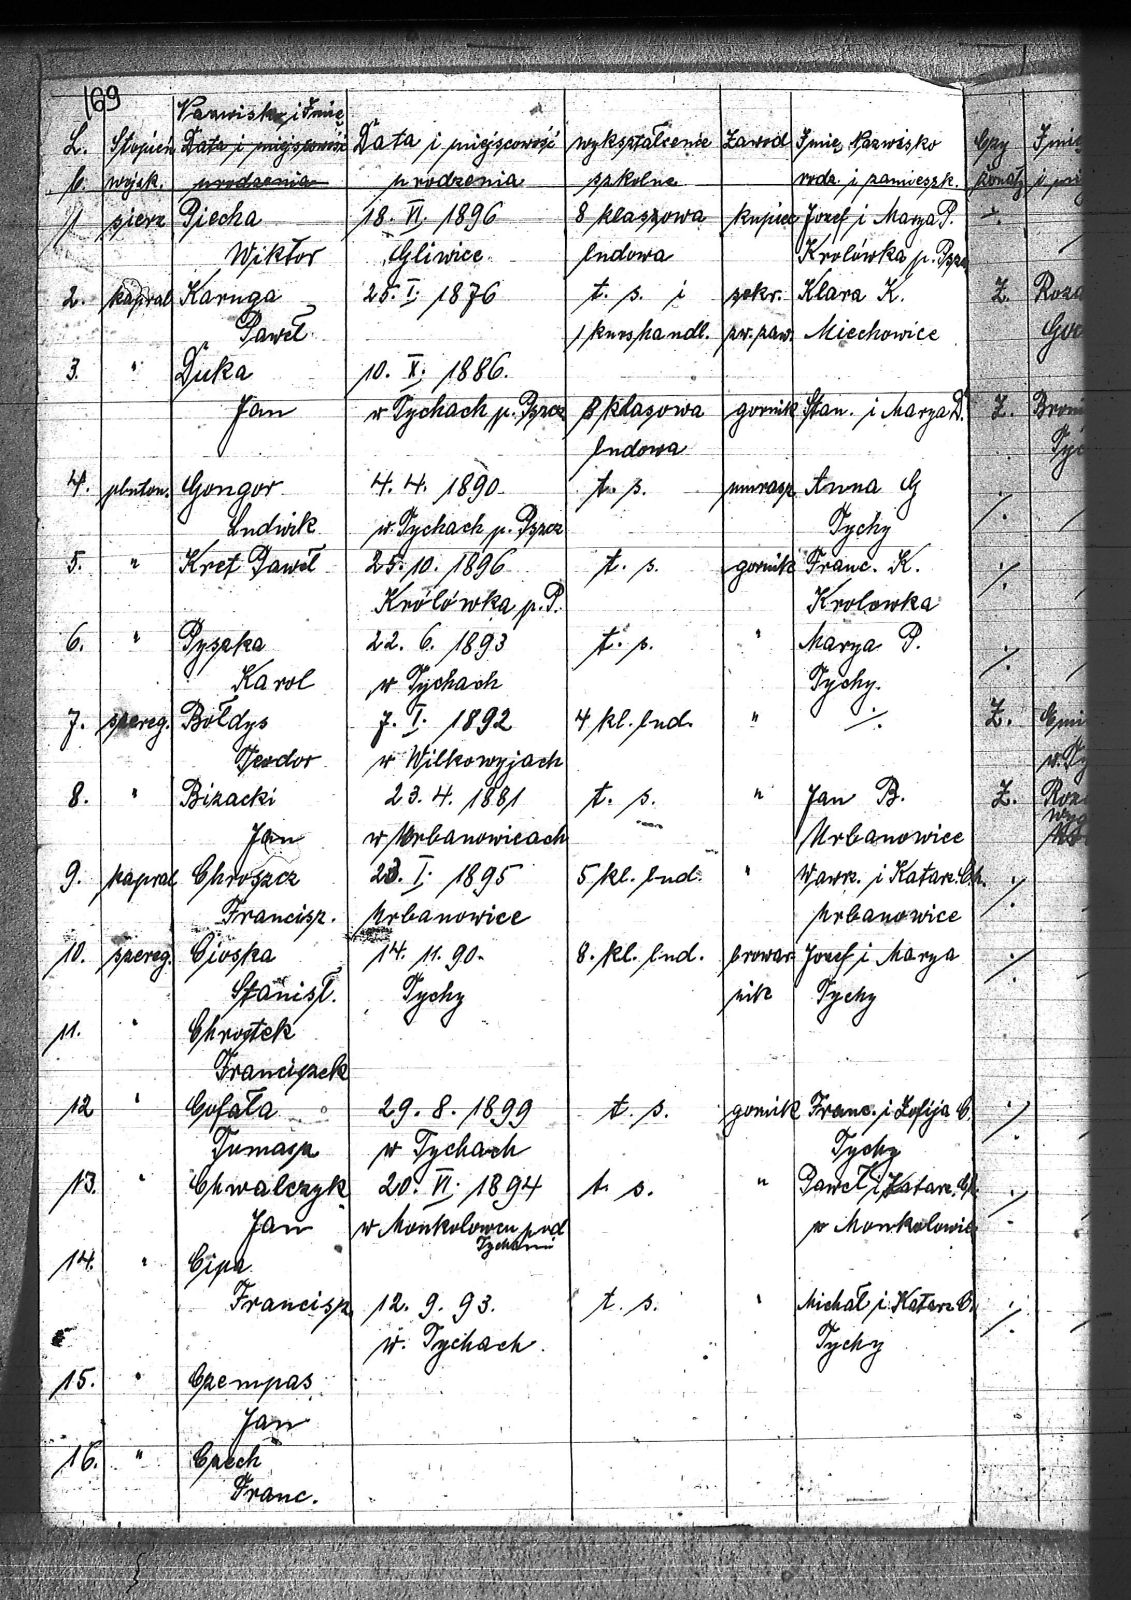 169
Nazwisko i Imię
L. Stopień Data i miejscowość Data i miejscowość wykształcenie Zawód Imię Nazwisko Czy Imię
b. wojsk. urodzenia urodzenia szkolne rodz. i zamieszk. żonaty i
1 sierż Piecha 18. VI. 1896 8 klaszowa kupiec Jozef i Marya P. ./.
Wiktor Gliwice ludowa Krolówka p. Pszcz
2. kapral Karuga 25. I. 1876 t. s. i sekr. Klara K. Ż. Roza
Paweł 1 kurs handl. zw. zaw. Miechowice
3. " Duka 10. X. 1886.
Jan w Tychach p. Pszcz 8 klasowa gornik Stan. i Marya D. Ż. Broni
ludowa Tyc
4. pluton. Gongor 4. 4. 1890 t. s. murasz Anna G ./.
Ludwik w. Tychach p. Pszcz Tychy
5. " Kret Paweł 25. 10. 1896 t. s. gornik Franc. K. ./.
Królówka p. P. Krolowka
6. " Pyszka 22. 6. 1893 t. s. " Marya P. ./.
Karol w Tychach Tychy.
7. szereg. Bołdys 7. I. 1892 4 kl. lud. " ./. Ż. Emi
Teodor w Wilkowyjach w. Ty
8. " Bizacki 23. 4. 1881 t. s. " Jan B. Ż. Roza
Jan w Urbanowicach Urbanowice
9. kapral Chroszcz 23. I. 1895 5 kl. lud. " Wawrz. i Katarz. Ch. ./.
Francisz. Urbanowice Urbanowice
10. szereg. Cioska 14. 11. 90. 8. kl. lud. browar Jozef i Marya ./.
Stanisł. Tychy nik Tychy
11. " Chrostek
Franciszek
12 " Cofała 29. 8. 1899 t. s. gornik Franc. i Zofija C. ./.
Tomasz w Tychach Tychy
13. " Chwalczyk 20. VI. 1894 t. s. " Paweł i Katarz. Ch. ./.
Jan w Monkolowcu pod w Monkolowic
Tychami
14. " Cipa
Francisz 12. 9. 93. t. s. " Michał i Katarz C. ./.
w. Tychach Tychy
15. " Czempas
Jan
16. " Czech
Franc.